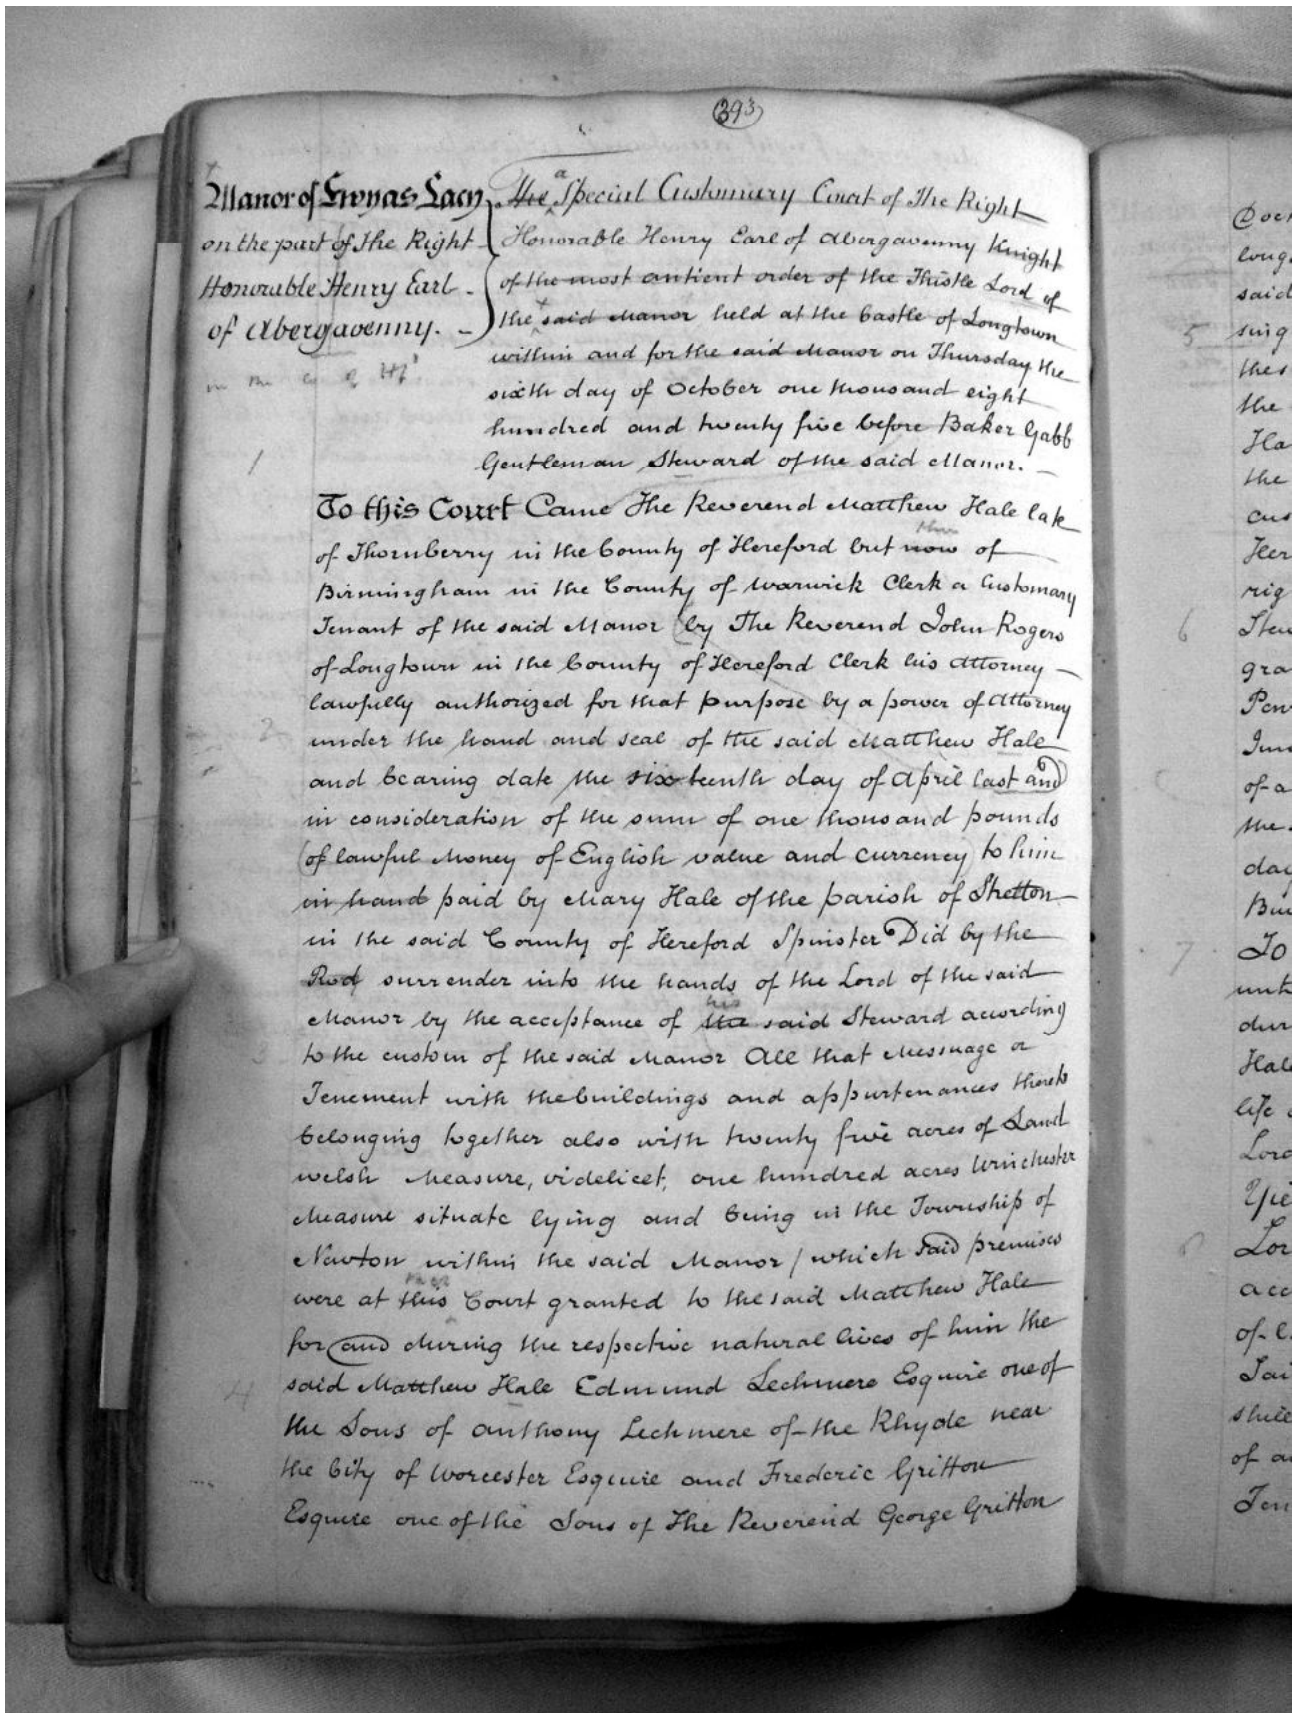 393
Manor of Ewyas Lacy
on the part of The Right
Honorable Henry Earl
of Abergavenny.
in the
The a Special Customary Court of The Right
Honorable Henry Earl of Abergavenny Knight
of the most antient order of the Thistle Lord of
the said Manor held at the Castle of Longtown
within and for the said Manor on Thursday the
sixth day of October one thousand eight
hundred and twenty five before Baker Gabb
Gentleman Steward of the said Manor.
1
To this Court Came The Reverend Matthew Hale late
then
of Thornberry in the County of Hereford but now of
Birmingham in the County of Warwick Clerk a Customary
Tenant of the said Manor (by The Reverend John Rogers
of Longtown in the County of Hereford Clerk his Attorney
lawfully authorized for that purpose by a power of Attorney
2
under the hand and seal of the said Matthew Hale
and bearing date the sixteenth day of April last and)
in consideration of the sum of one thousand pounds
(of lawful Money of English value and currency) to him
in hand paid by Mary Hale of the parish of Stretton
in the said County of Hereford Spinster Did by the
Rod surrender into the hands of the Lord of the said
his
Manor by the acceptance of the said Steward according
3
to the custom of the said Manor All that Messuage or
Tenement with the buildings and appurtenances thereto
belonging together also with twenty five acres of Land
welsh Measure, videlicet, one hundred acres Winchester
Measure situate lying and being in the Township of
Newton within the said Manor / which said premises
were at this Court granted to the said Matthew Hale
for (and during the respective natural lives of him the
4
said Matthew Hale Edmund Lechmere Esquire one of
the Sons of Anthony Lechmere of the Rhyde near
the City of Worcester Esquire and Frederic Gritton
Esquire one of the Sons of The Reverend George Gritton
long
said
5
sing
the
Ha
the
cus
Her
rig
6
Stew
gra
of a
the
day
7
To
dur
Hale
life
Lord
Lor
acc
of
of a
Ten